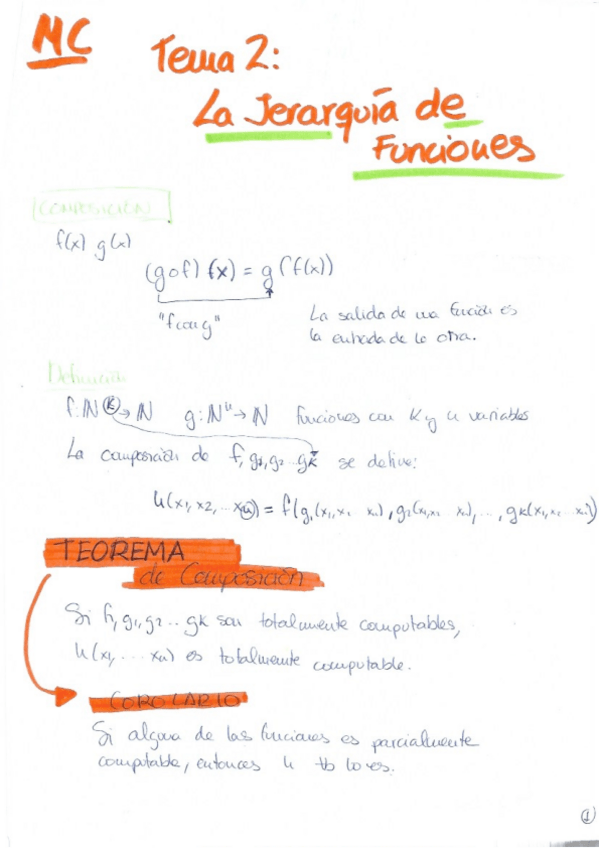 MC
Tema 2:
La Jerarquía de
Funciones
COMPOSICIÓN
f(x) g(x)
(g∘f)(x) = g(f(x))
"f con g"
La salida de una función es
la entrada de la otra.
Definición
f: ℕᵏ → ℕ g: ℕⁿ → ℕ funciones con K y n variables
La composición de f, g₁, g₂ ... gk se define:
h(x₁, x₂, ... xn) = f(g₁(x₁, x₂ ... xn), g₂(x₁, x₂ ... xn), ..., gk(x₁, x₂ ... xn))
TEOREMA
de Composición
Si f, g₁, g₂ ... gk son totalmente computables,
h(x₁, ... xn) es totalmente computable.
COROLARIO
Si alguna de las funciones es parcialmente
computable, entonces h tb lo es.
1